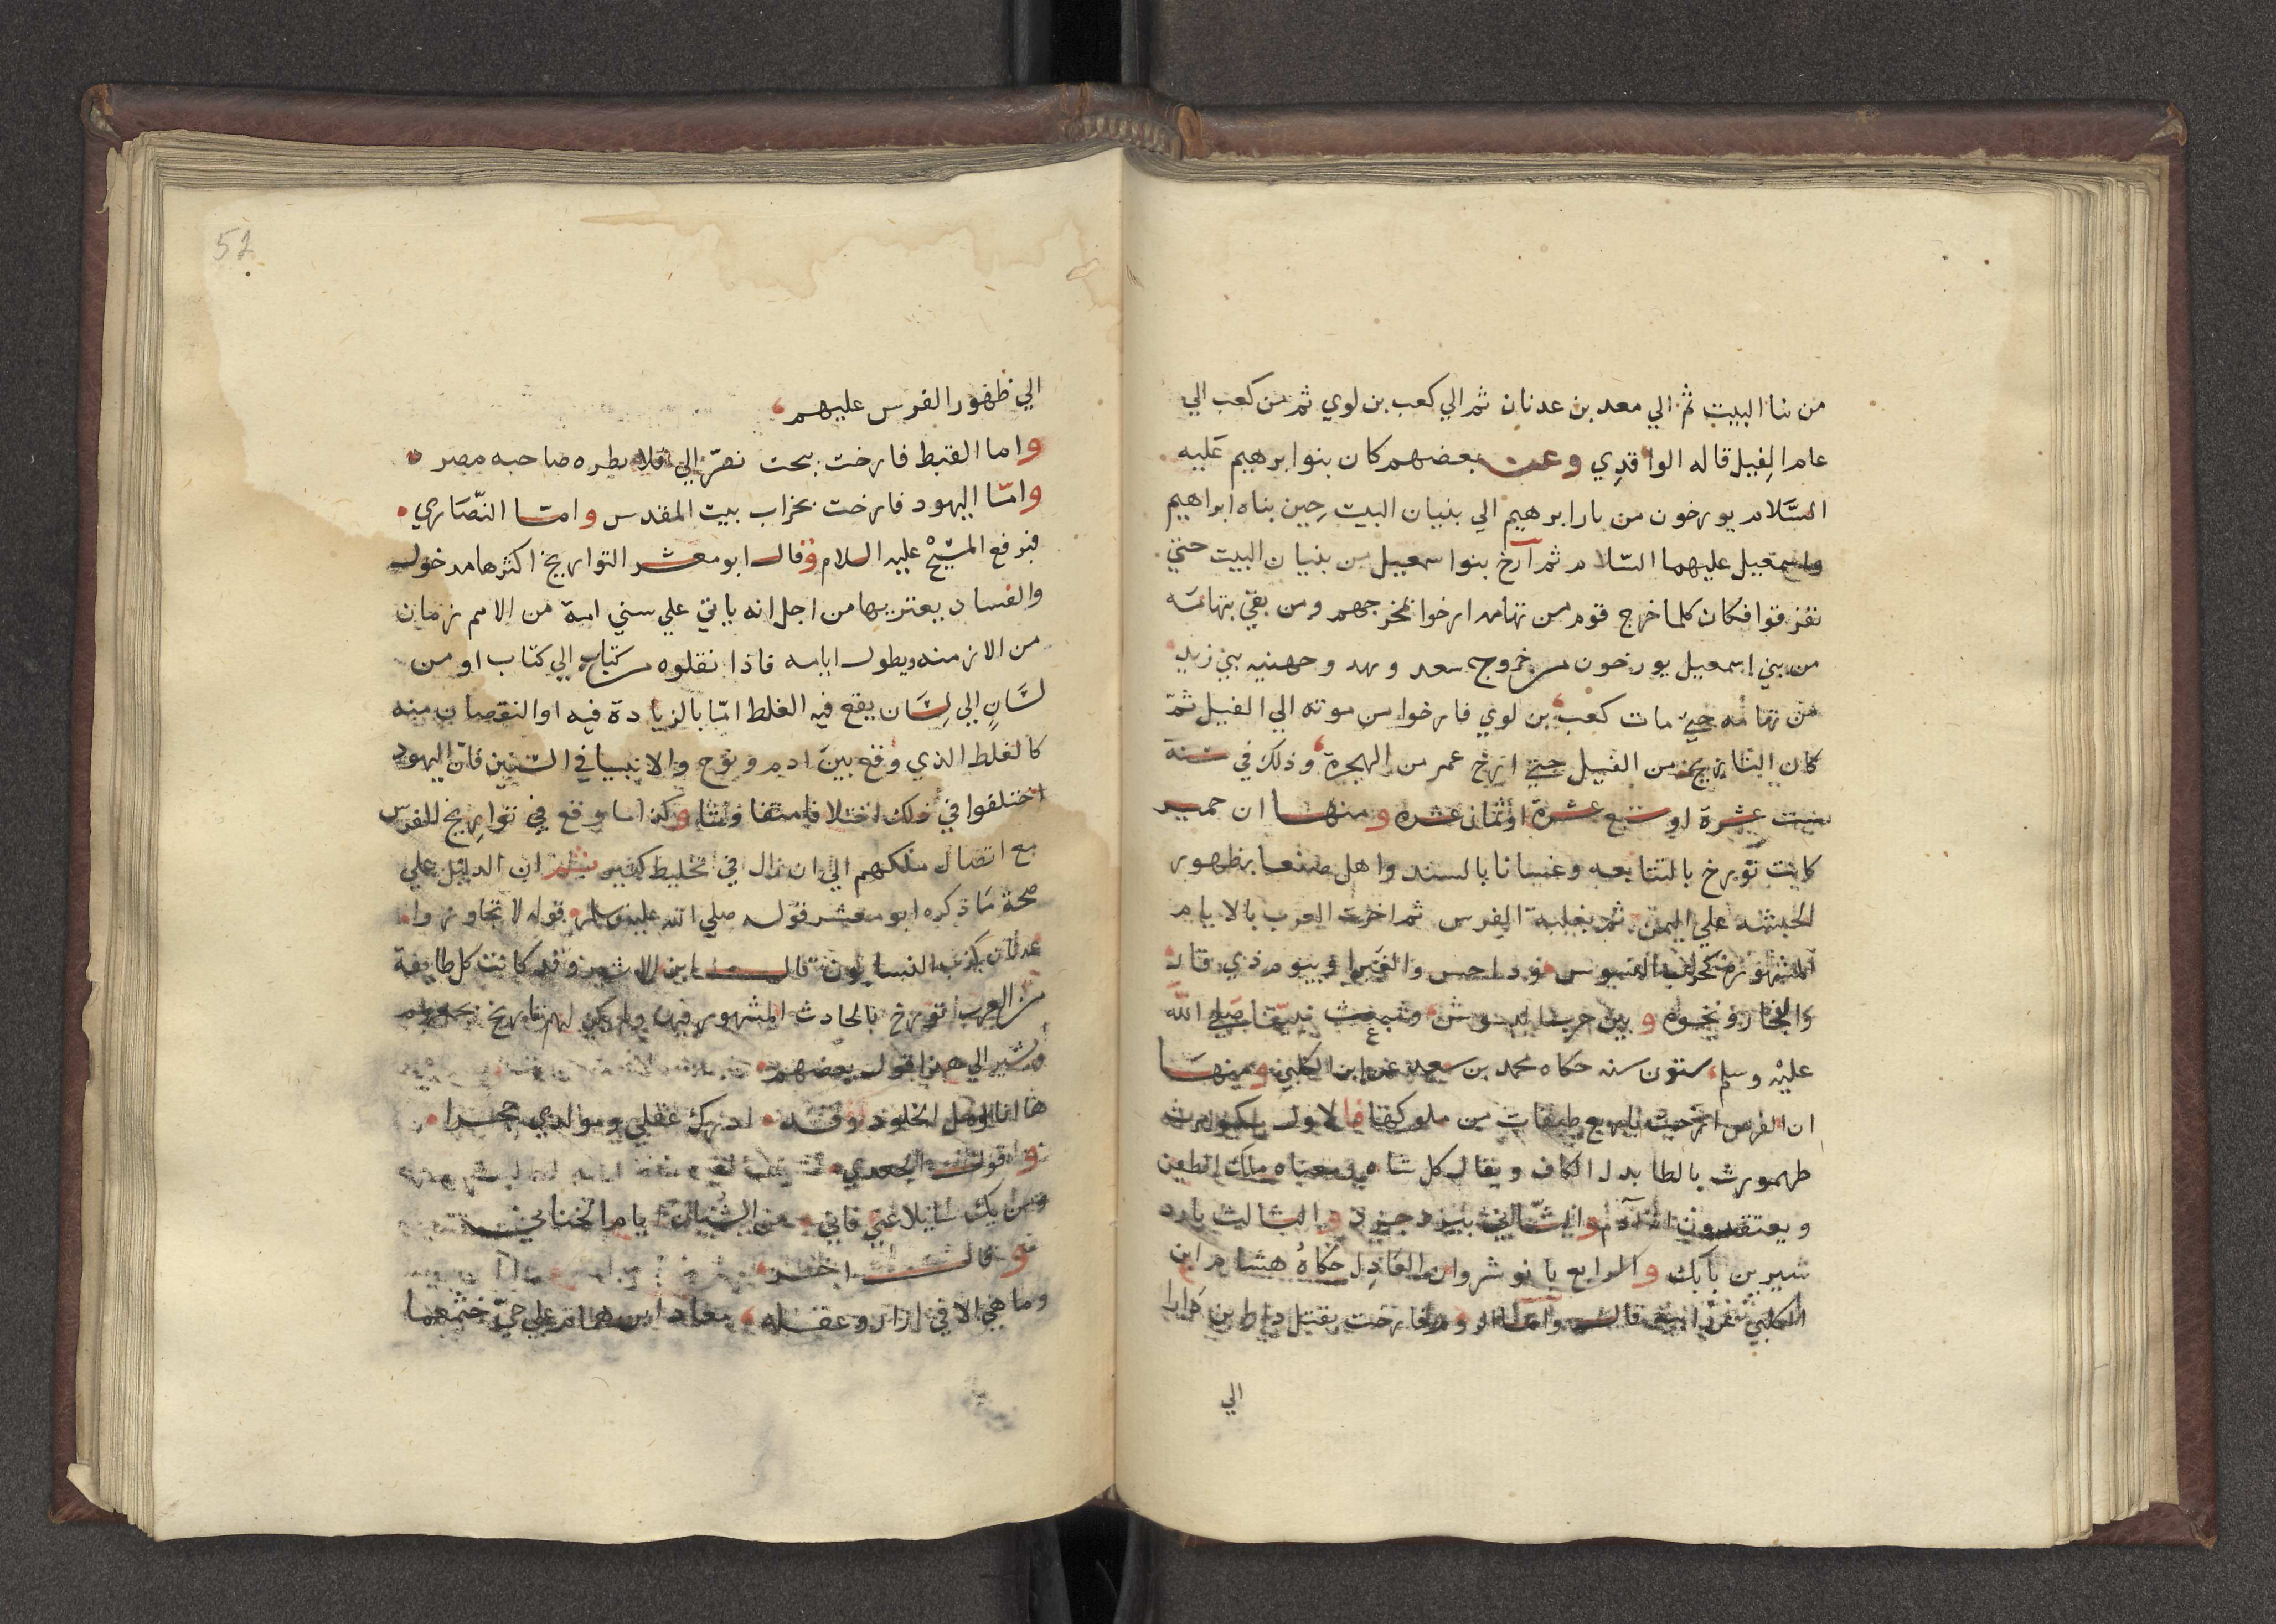 من بنا البيت ثم الي معد بن عدنان ثم الي كعب بن لوي ثم من كعب الي
عام الفيل قاله الواقدي وعن بعضهم كان بنوا برهيم عليه
السلام يورخون من نار ابرهيم الي بنيان البيت حين بناه ابراهيم
واسمعيل عليهما السلام ثم أرخ بنوا سمعيل من بنيان البيت حتي
تفرقوا فكان كلما خرج قوم من تهامه ارخوا بمخرجهم ومن بقي بتهامه
من بني اسمعيل يورخون من خروج سعد ونهد وجهنيه بني زيد
من تهامه حتي مات كعب بن لوي فارخوا من موته الي الفيل ثم
كان التاريخ من الفيل حتي ارخ عمر من الهجرة وذلك في سنة
ست عشرة او سبع عشرة او ثمان عشره ومنها ان حمير
كانت تورخ بالتتابعه وغسانا بالسند واهل صنعا بظهور
الحبشه علي اليمن ثم بغلبة الفرس ثم ارخت العرب بالايام
المشهورة كحرب البسوس وداحس والغبرا وبيوم ذي قار
والفجار ونحوه وبين حرب البسوس ومبعث نبينا صلي الله
عليه وسلم ستون سنه حكاه محمد بن سعد عن ابن الكلبي ومنها
ان الفرس ارخت باربع طبقات من ملوكها فالاول بكيومرث
طهمورث بالطا بدل الكاف ويقال كل شاه معناه ملك الطين
ويعتقدون انه آدم والثاني بيزدجرد والثالث بارد
شير بن بابك والرابع بانوشروان العادل حكاه هشام ابن
الكلبي عن ابيه قال واما الروم فارخت بقتل دارا بن دارا
الي
52
الي ظهور الفرس عليهم
واما القبط فارخت ببخت نصر الي قلابطره صاحبه مصر
وامّا اليهود فارخت بخراب بيت المقدس وامّا النّصاري
فبرفع المسيح عليه السلام وقال ابو معشر التواريخ اكثرها مدخول
والفساد يعتريها من اجل انه ياتي علي سني امة من الامم زمان
من الازمنه ويطول ايامه فاذا نقلوه من كتاب الي كتاب او من
لسَانٍ الي لِسَان يقع فيه الغلط امّا بالزيادة فيه او النقصان منه
كالغلط الذي وقع بين ادم ونوح والانبيا في السنين فانّ اليهود
اختلفوا في ذلك اختلافا متفاوتا وكذا ما وقع في تواريخ الفرس
مع اتصال ملكهم الي ان زال في تخليط كثير ثم ان الدليل علي
صحة مَا ذكره ابو معشر قول صلي الله عليه وسلم قوله لا تجاوزوا
عدنان كذب النسابون قال ابن الاثير وقد كانت كل طايفة
من العرب تورخ بالحادث المشهور فيها ولم يكن لهم تاريخ يجمعهم
ويشير الي هذا قول بعضهم
ها انا امل الخلود وقد ادرك عقلي ومولدي حجرا
وقول الجعدي
ومن يك سايلا عني فاني من الشبان ايام الخنان
وقال اخر
وما هي الا في ازار وعقله مغار ابن همام علي حيّ خثعما